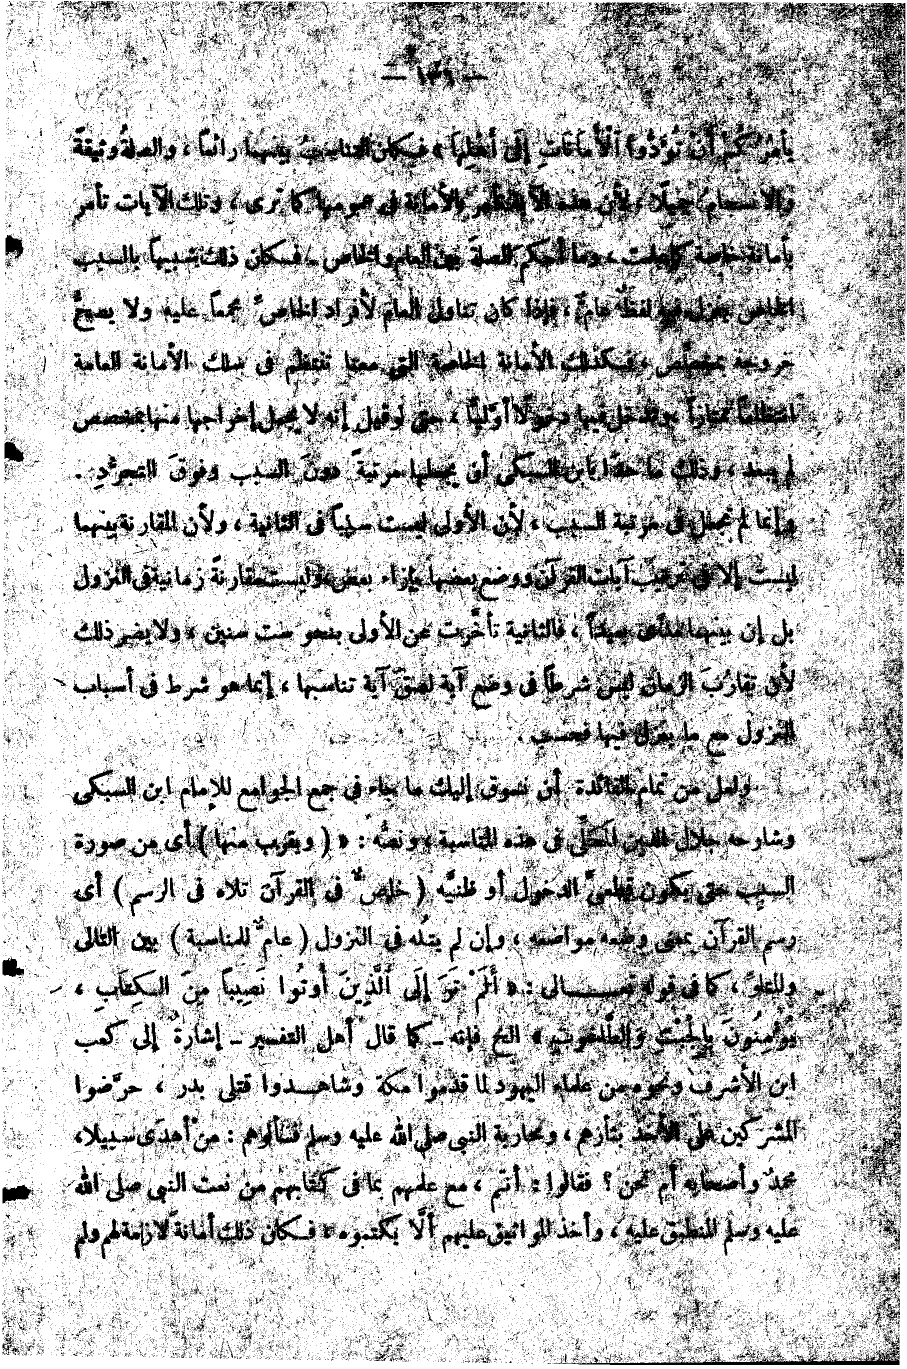 — ١٣١ —
يأمركُمْ أَنْ تُؤَدُّوا الْأَمَانَاتِ إِلَى أَهْلِهَا » فكان التناسبُ بينهما رائعاً ، والصلةُ وثيقةً
والانسجام جميلا ، لأن هذه الآية تأمر بالأمانة في عمومها كما ترى ، وتلك الآيات تأمر
بأمانة خاصة كما علمت ، وما أحكم الصلةَ بين العام والخاص . فكان ذلك شبيهاً بالسبب
الخاص ينزل فيه لفظٌ عامٌّ ، فإذا كان تناول العام لأفراد الخاصِّ مجمعاً عليه ولا يصحُّ
خروجه بمخصِّص ، فكذلك الأمانة الخاصة التي معنا تنتظم في سلك الأمانة العامة
انتظاماً ممتازاً وتدخل فيها دخولًا أوّليًّا ، حتى لو قيل إنه لا يحل إخراجها منها بمخصص
لم يبعد ، وذلك ما حدا بابن السبكي أن يجعلها مرتبةً دونَ السبب وفوقَ التجرُّدِ .
وإنما لم تجعل في مرتبة السبب ، لأن الأولى ليست سبباً في الثانية ، ولأن المقارنة بينهما
ليست إلا في ترتيب آيات القرآن ووضع بعضها بإزاء بعض ، وليست مقارنةً زمانية في النزول
بل إن بينهما مدًى بعيداً ، فالثانية تأخَّرت عن الأولى بنحو ست سنين ، ولا يضير ذلك
لأن تقارُبَ الزمان ليس شرطاً في وضع آية لصقَ آية تناسبها ، إنما هو شرط في أسباب
النزول مع ما ينزل فيها فحسب .
ولعل من تمام الفائدة أن نسوق إليك ما جاء في جمع الجوامع للإمام ابن السبكي
وشارحه جلال الدين المحلّي في هذه المناسبة ، ونصُّه : « ( ويقرب منها ) أي من صورة
السبب حتى يكون قطعيَّ الدخول أو ظنيَّه ( خاصٌّ في القرآن تلاه في الرسم ) أي
رسم القرآن بمعنى وضعه مواضعه ، وإن لم يتلُه في النزول ( عامٌّ للمناسبة ) بين التالي
والمتلوِّ ، كما في قوله تعـــالى : « أَلَمْ تَرَ إِلَى الَّذِينَ أُوتُوا نَصِيباً مِنَ الْكِتَابِ ،
يُؤْمِنُونَ بِالْجِبْتِ وَالطَّاغُوتِ » الخ فإنه ـ كما قال أهل التفسير ـ إشارةٌ إلى كعب
ابن الأشرف ونحوه من علماء اليهود لما قدموا مكة وشاهـدوا قتلى بدر ، حرَّضوا
المشركين على الأخذ بثأرهم ، ومحاربة النبي صلى الله عليه وسلم فسألوهم : من أهدى سبيلا،
محمدٌ وأصحابه أم نحن ؟ فقالوا : أنتم ، مع علمهم بما في كتابهم من نعت النبي صلى الله
عليه وسلم المنطبق عليه ، وأخذ المواثيق عليهم ألَّا يكتموه « فكان ذلك أمانةً لازمة لهم ولم